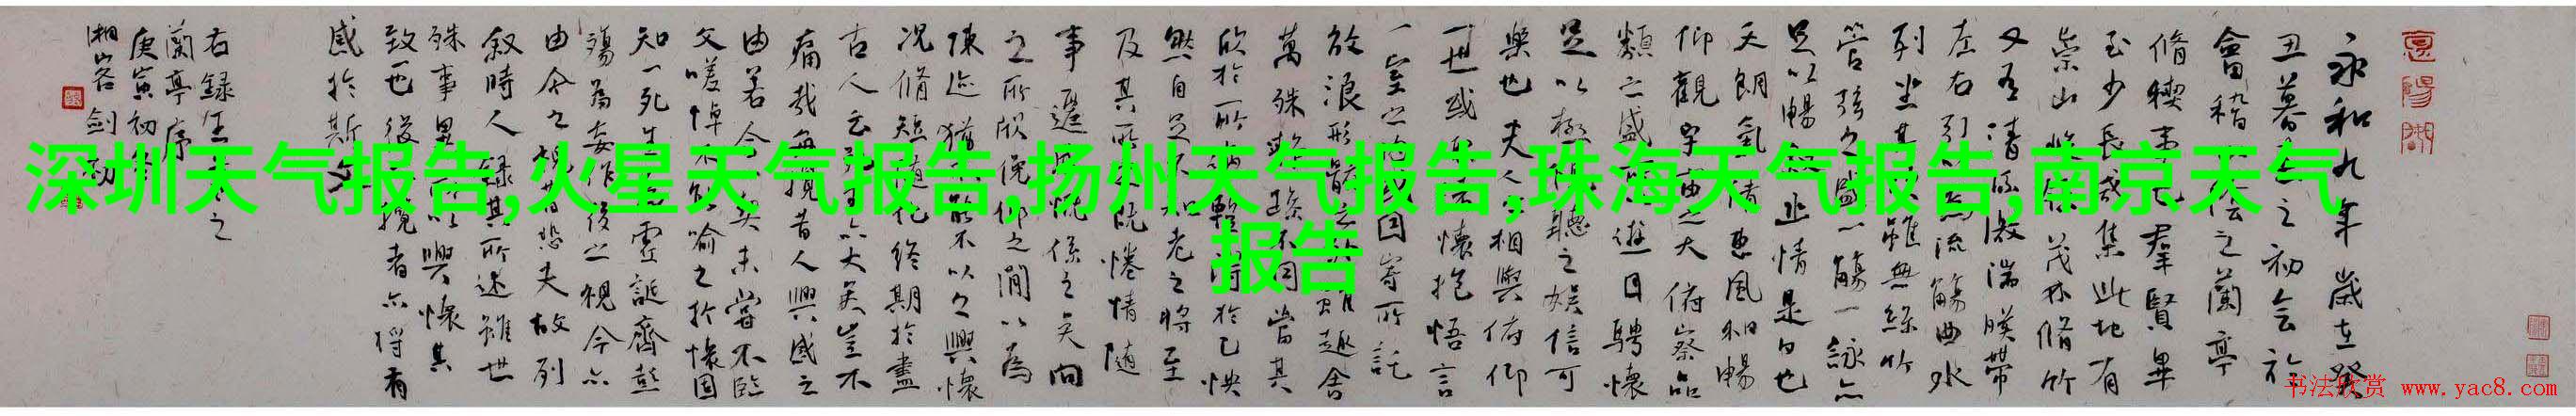 深圳天气报告,火星天气报告,扬州天气报告,珠海天气报告,南京天气
报告
永和九年歲在癸
丑暮春之初会於
會稽山陰之蘭亭
脩稧事也群賢畢
至少長咸集此地有
崇山峻領茂林脩竹
又有清流激湍暎帶
左右引以為流觴曲水
列坐其次雖無絲竹
管弦之盛一觴一詠亦
足以暢叙幽情是日也
天朗氣清惠風和暢
仰觀宇宙之大俯察品
類之盛所以遊目騁懷
足以極視聽之娱信可
樂也夫人之相與俯仰
一世或取諸懷抱悟言
一室之内或因寄所託
放浪形骸之外雖趣舍
萬殊静躁不同當其
欣於所遇暫得於己怏
然自足不知老之將至
及其所之既惓情随
事遷感慨係之矣向
之所欣俛仰之閒以為
陳迹猶不能不以之興懷
況脩短隨化終期於盡
古人云死生亦大矣豈不
痛哉每攬昔人興感之
由若合一契未嘗不臨
文嗟悼不能喻之於懷固
知一死生為虚誕齊彭
殤為妄作後之視今亦
由今之視昔悲夫故列
叙時人録其所述雖世
殊事異所以興懷其
致一也後之攬者亦将有
感於斯文
右録王羲之
蘭亭序
庚寅初冬
湘客剑
书法欣赏 www.yac8.com